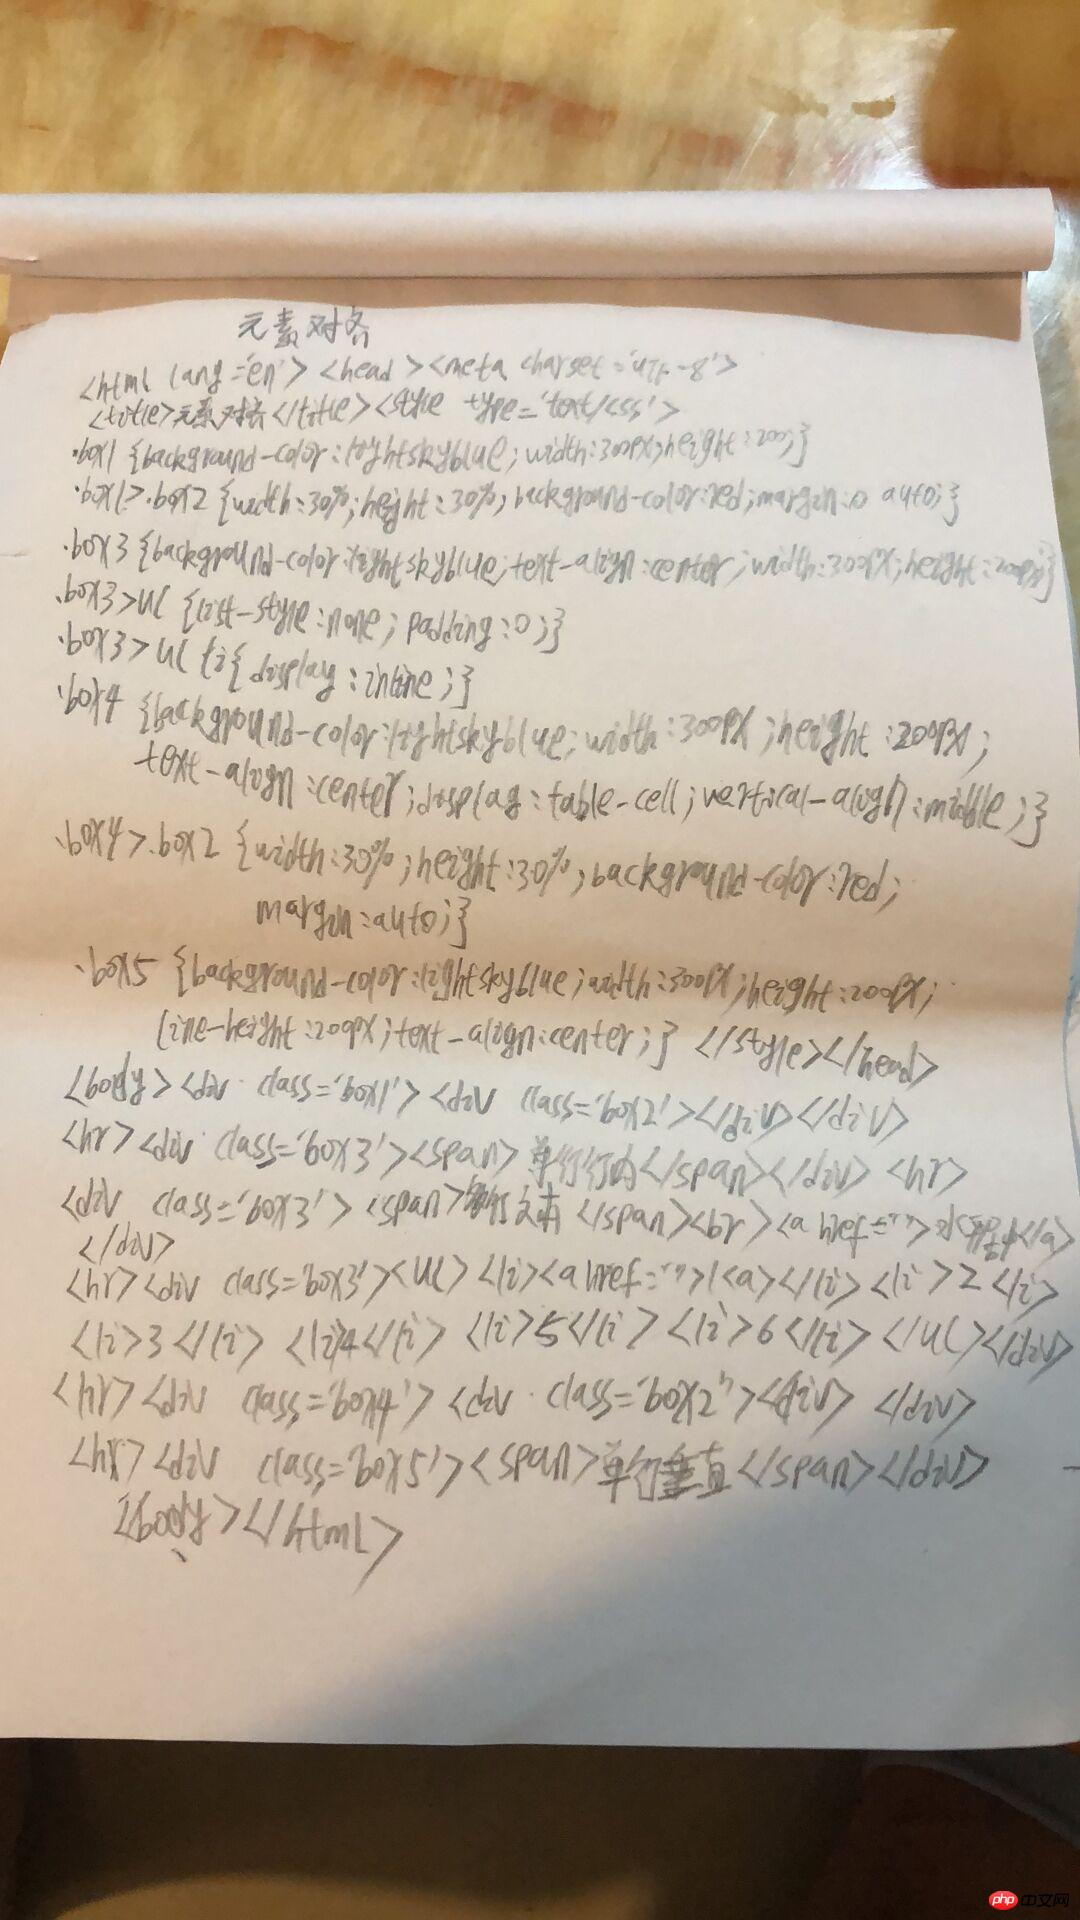 元素对齐
<html lang='en'> <head><meta charset='utf-8'>
<title>元素对齐</title><style type='text/css'>
.box1 {background-color:lightskyblue;width:300px;height:200;}
.box1>.box2 {width:30%;height:30%;background-color:red;margin:0 auto;}
.box3 {background-color:lightskyblue;text-align:center;width:300px;height:200px;}
.box3>ul {list-style:none;padding:0;}
.box3>ul li{display:inline;}
.box4 {background-color:lightskyblue;width:300px;height:200px;
text-align:center;display:table-cell;vertical-align:middle;}
.box4>.box2 {width:30%;height:30%;background-color:red;
margin:auto;}
.box5 {background-color:lightskyblue;width:300px;height:200px;
line-height:200px;text-align:center;} </style></head>
<body><div class='box1'><div class='box2'></div></div>
<hr><div class='box3'><span>单行行内</span></div><hr>
<div class='box3'><span>行文本</span><br><a href=""></a>
</div>
<hr><div class='box3'><ul><li><a href="">1<a></li><li>2<li>
<li>3</li> <li>4</li> <li>5</li> <li>6</li> </ul></div>
<hr><div class='box4'> <div class='box2"><div> </div>
<hr><div class='box5'><span>单行垂直</span></div>
<body></html>
php中文网